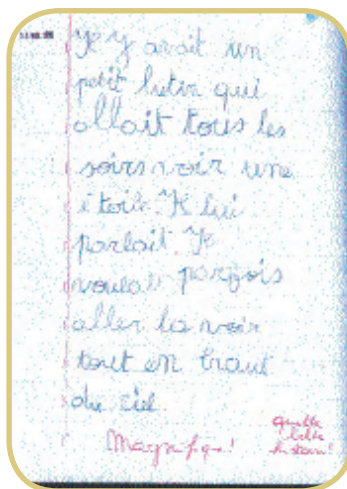 Il y avait un
petit lutin qui
allait tous les
soirs voir une
étoile. Il lui
parlait. Il
voulait parfois
aller la voir
tout en haut
du ciel.
Magnifique!
Quelle
belle
histoire!